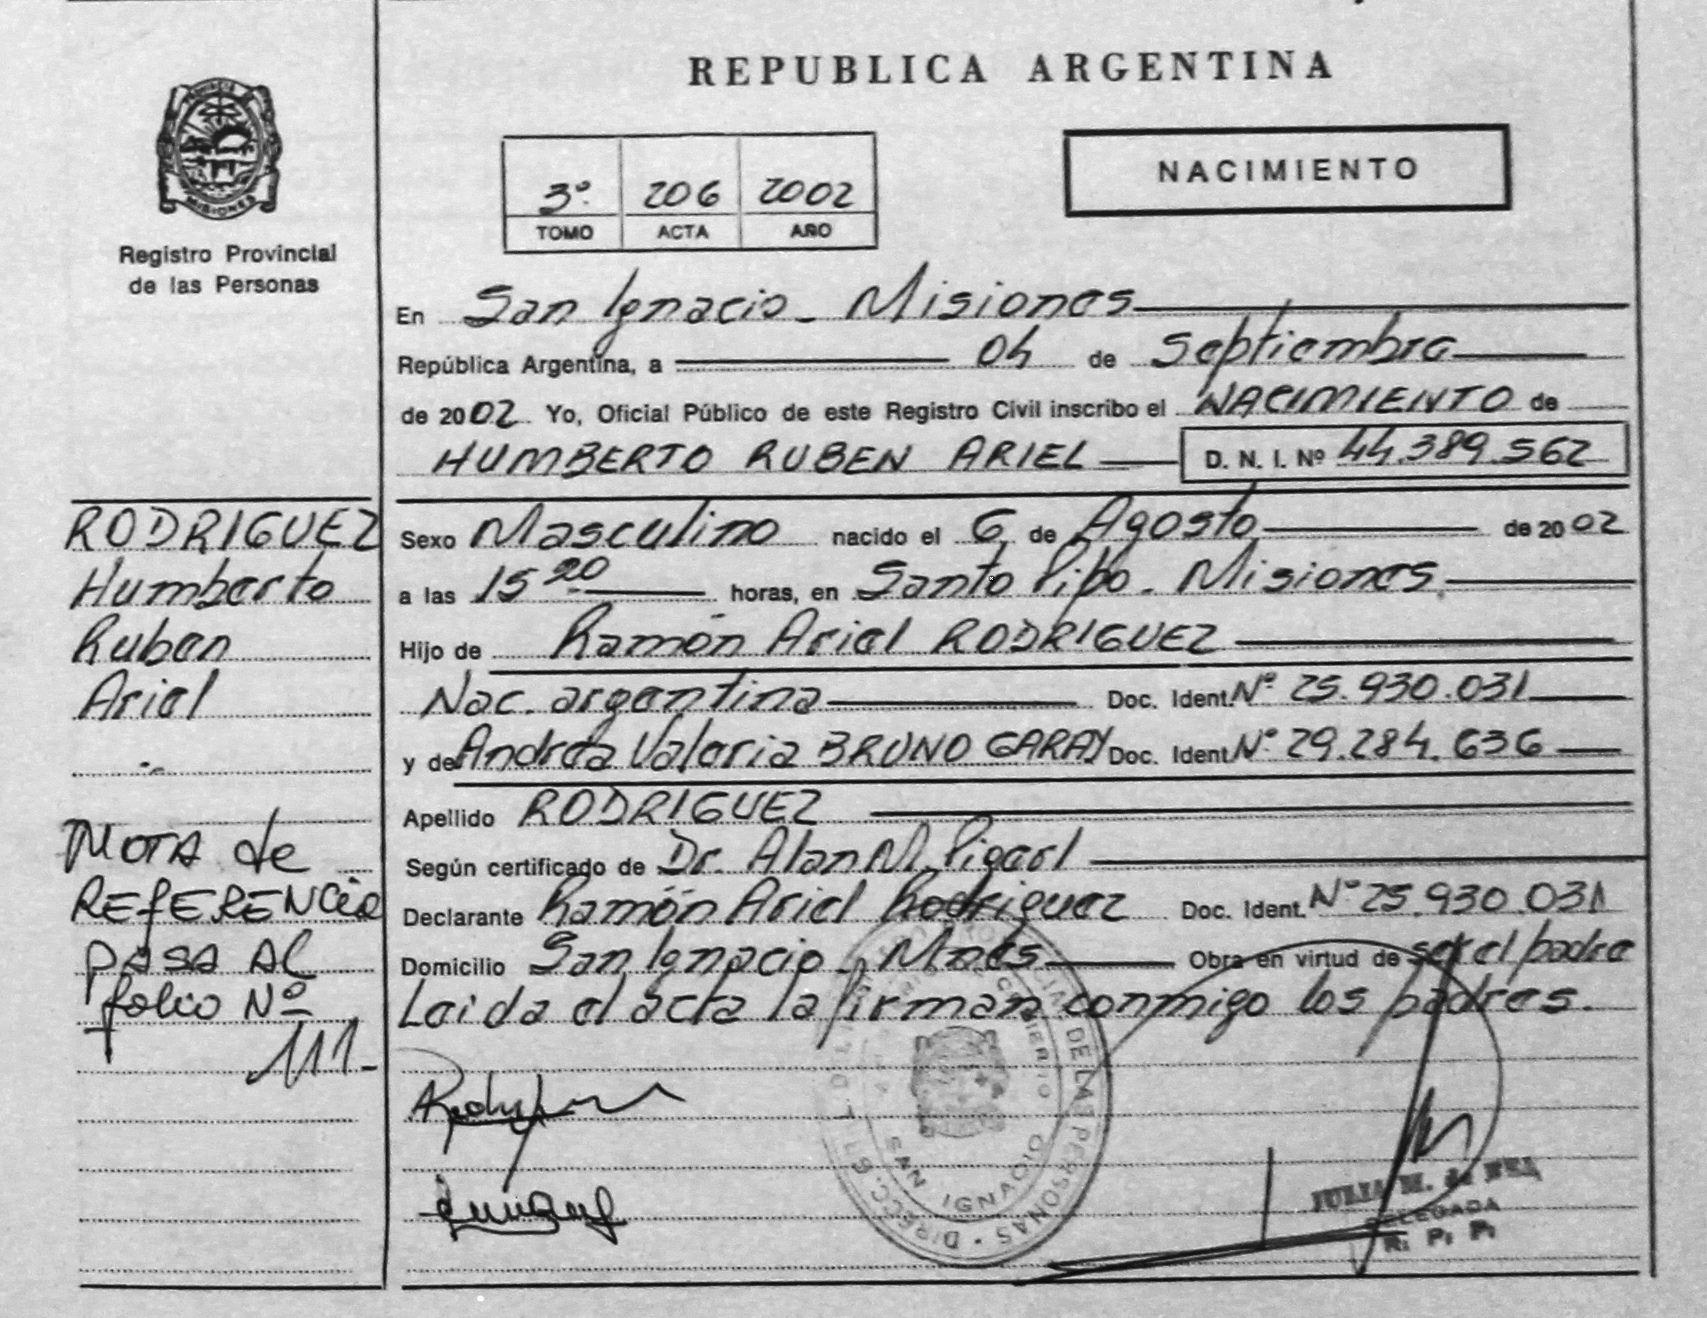 REPUBLICA ARGENTINA
NACIMIENTO
3º 206 2002
TOMO ACTA AÑO
MISIONES
Registro Provincial
de las Personas
En San Ignacio - Misiones
República Argentina, a 04 de Septiembre
de 2002 Yo, Oficial Público de este Registro Civil inscribo el NACIMIENTO de
HUMBERTO RUBEN ARIEL D. N. I. Nº 44.389.562
RODRIGUEZ
Humberto
Ruben
Ariel
Sexo Masculino nacido el 6 de Agosto de 2002
a las 15 20 horas, en Santo Pipo - Misiones
Hijo de Ramón Ariel RODRIGUEZ
Nac. argentina Doc. Ident. Nº 25.930.031
y de Andrea Valeria BRUNO GARAY Doc. Ident. Nº 29.284.636
Apellido RODRIGUEZ
Según certificado de Dr. Alan M.
Declarante Ramón Ariel Rodriguez Doc. Ident. Nº 25.930.031
Domicilio San Ignacio - Mnes Obra en virtud de ser el padre
Leida el acta la firman conmigo los padres.
NOTA de
REFERENCIA
PASA AL
folio Nº
111-
DE LAS PERSONAS - DIRECC.
SAN IGNACIO
JULIA M. de
DELEGADA
R. P. P.